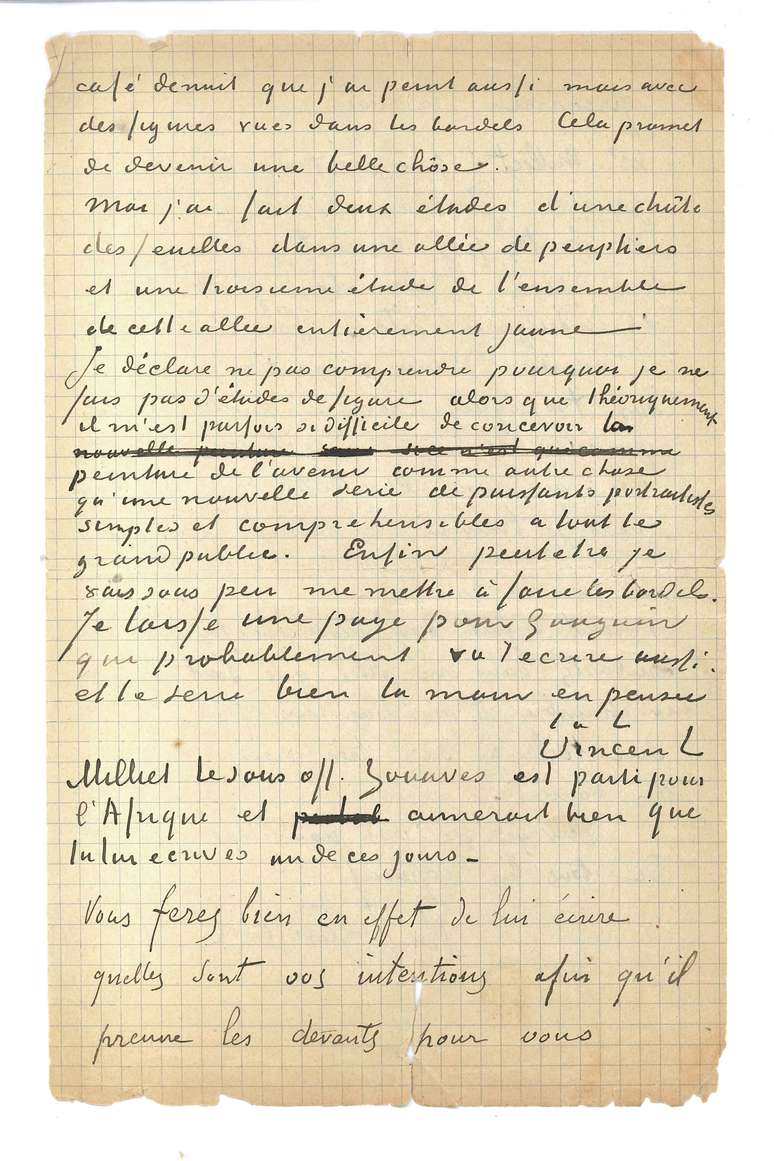 café de nuit que j'ai peint aussi mais avec
des figures vues dans les bordels Cela promet
de devenir une belle chôse.
moi j'ai fait deux études d'une chûte
des feuilles dans une allée de peupliers
et une troisieme étude de l'ensemble
de cette allée entièrement jaune
Je déclare ne pas comprendre pourquoi je ne
fais pas d'études de figure alors que théoriquement
il m'est parfois si difficile de concevoir la
nouvelle peinture si ce n'est que comme
peinture de l'avenir comme autre chose
qu'une nouvelle serie de puissants portraitistes
simples et comprehensibles a tout le
grand public. Enfin peutetre je
vais sous peu me mettre à faire les bordels.
Je laisse une page pour Gauguin
qui probablement va t'ecrire aussi.
et te serre bien la main en pensee
t. à t.
Vincent
Milliet le sous off. Zouaves est parti pour
l'Afrique et aimerait bien que
tu lui ecrives un de ces jours –
Vous ferez bien en effet de lui écrire
quelles sont vos intentions afin qu'il
prenne les devants pour vous